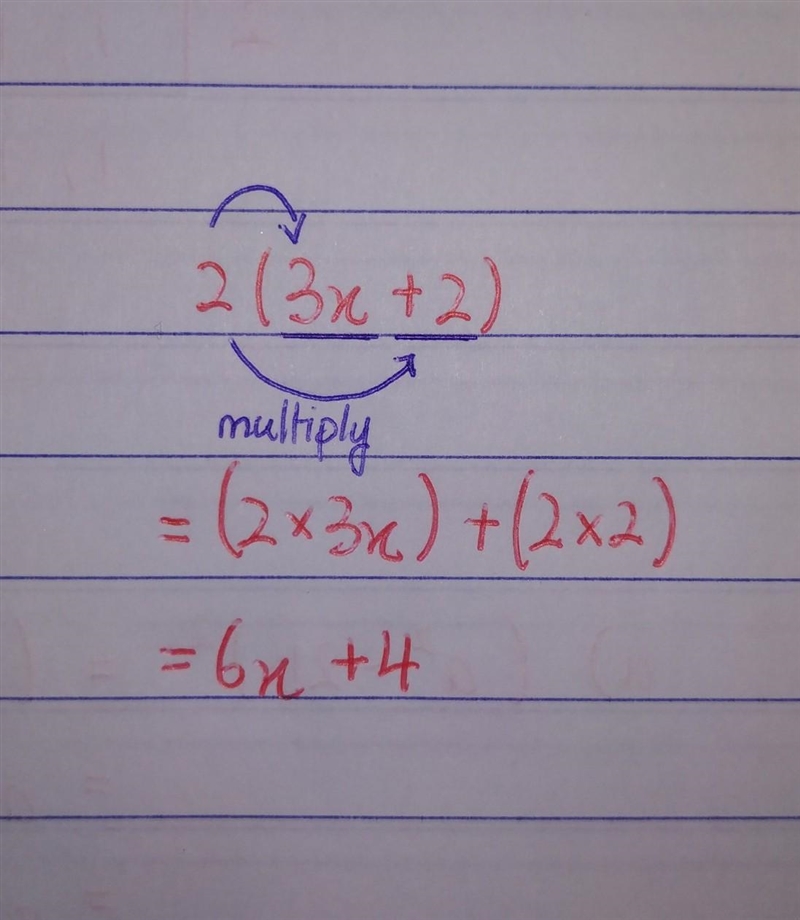 2(3x + 2)
multiply
= (2×3x) + (2×2)
= 6x + 4